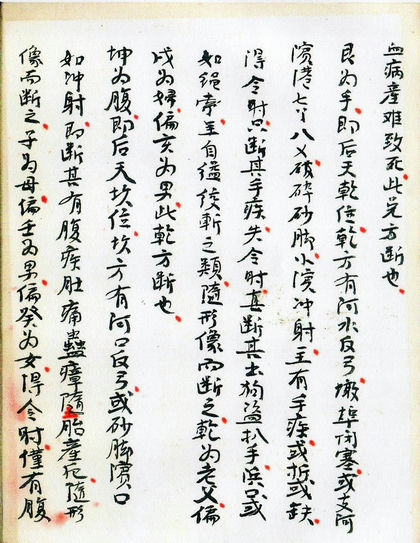 血病產难致死此兑方断也
艮为手即后天乾位乾方有河水反弓墩埠闭塞或支河
濱港七丫八乂破碎砂脚小濱冲射主有手疾或折或缺
得令时只断其手疾失令时直断其出狗盗扒手浜口或
如绳索主自缢绞斬之類隨形像而断之乾为老父偏
戌为婦偏亥为男此乾方断也
坤为腹即后天坎位坎方有河口反弓或砂脚濱口
如冲射即断其有腹疾肚痛蠱瘴隨胎產死隨形
像而断之子为母偏壬为男偏癸为女得令时僅有腹